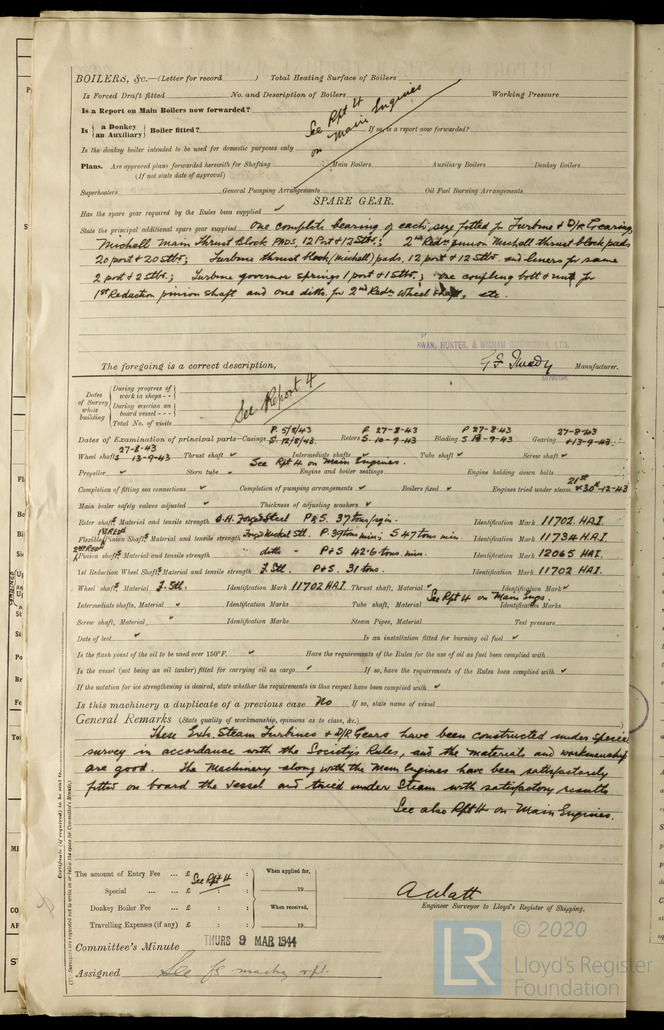 BOILERS, &c.—(Letter for record ) Total Heating Surface of Boilers
Is Forced Draft fitted No. and Description of Boilers Working Pressure
Is a Report on Main Boilers now forwarded?
Is { a Donkey / an Auxiliary } Boiler fitted? If so, is a report now forwarded?
See Rpt 4 on Main Engines
Is the donkey boiler intended to be used for domestic purposes only
Plans. Are approved plans forwarded herewith for Shafting Main Boilers Auxiliary Boilers Donkey Boilers
(If not state date of approval)
Superheaters General Pumping Arrangements Oil Fuel Burning Arrangements
SPARE GEAR.
Has the spare gear required by the Rules been supplied ✓
State the principal additional spare gear supplied One complete bearing of each size fitted for Turbine & D/R Gearing,
Michell Main Thrust Block PADS, 12 Port & 12 Stbd.; 2nd Redn pinion Michell thrust block pads
20 port & 20 Stbd; Turbine thrust block (Michell) pads, 12 port & 12 Stbd and liners for same
2 port & 2 Stbd; Turbine governor springs 1 port & 1 Stbd; one coupling bolt & nut for
1st Reduction pinion shaft and one ditto for 2nd Redn Wheel shaft, etc.
SWAN, HUNTER, & WIGHAM RICHARDSON, LTD.
The foregoing is a correct description, Manufacturer.
Dates of Survey while building
During progress of work in shops - -
During erection on board vessel - - -
Total No. of visits
See Report 4
Dates of Examination of principal parts—Casings P. 5/8/43 S. 12/8/43. Rotors P. 27-8-43 S. 10-9-43 Blading P 27-8-43 S 10-9-43 Gearing 27-8-43 & 13-9-43
Wheel shafts 27-8-43 13-9-43 Thrust shaft ✓ Intermediate shafts ✓ Tube shaft ✓ Screw shaft ✓
See Rpt 4 on Main Engines.
Propeller ✓ Stern tube Engine and boiler seatings Engine holding down bolts
Completion of fitting sea connections ✓ Completion of pumping arrangements ✓ Boilers fixed ✓ Engines tried under steam 21st & 30th-12-43
Main boiler safety valves adjusted ✓ Thickness of adjusting washers ✓
Rotor shafts Material and tensile strength O.H. Forged Steel P & S. 37 tons/sq in. Identification Mark 11702 HAI.
1st REDN Flexible Pinion Shafts Material and tensile strength Forged Nickel Stl. P. 39 tons min; S 47 tons min. Identification Mark 11734 HAI.
2nd REDN Pinion shafts Material and tensile strength " ditto - P & S 42·6 tons. min. Identification Mark 12065 HAI.
1st Reduction Wheel Shafts Material and tensile strength F. Stl. P & S. 31 tons. Identification Mark 11702 HAI.
Wheel shafts, Material F. Stl. Identification Mark 11702 HAI. Thrust shaft, Material ✓ Identification Mark ✓
See Rpt 4 on Main Engs.
Intermediate shafts, Material ✓ Identification Marks Tube shaft, Material Identification Marks
Screw shaft, Material ✓ Identification Marks Steam Pipes, Material Test pressure
Date of test ✓ Is an installation fitted for burning oil fuel ✓
Is the flash point of the oil to be used over 150°F. ✓ Have the requirements of the Rules for the use of oil as fuel been complied with
Is the vessel (not being an oil tanker) fitted for carrying oil as cargo ✓ If so, have the requirements of the Rules been complied with ✓
If the notation for ice strengthening is desired, state whether the requirements in this respect have been complied with ✓
Is this machinery a duplicate of a previous case No If so, state name of vessel
General Remarks (State quality of workmanship, opinions as to class, &c.)
These Exh. Steam Turbines & D/R Gears have been constructed under special
survey in accordance with the Society's Rules, and the materials and workmanship
are good. The Machinery along with the Main Engines have been satisfactorily
fitted on board the vessel and tried under steam with satisfactory results
See also Rpt 4 on Main Engines.
Certificate (if required) to be sent to
The amount of Entry Fee ... £ : : When applied for,
See Rpt 4
Special ... ... £ : : 19
Donkey Boiler Fee ... £ : : When received,
Travelling Expenses (if any) £ : : 19
A Watt
Engineer Surveyor to Lloyd's Register of Shipping.
Committee's Minute THURS 9 MAR 1944
Assigned See
© 2020
LR
Lloyd's Register
Foundation